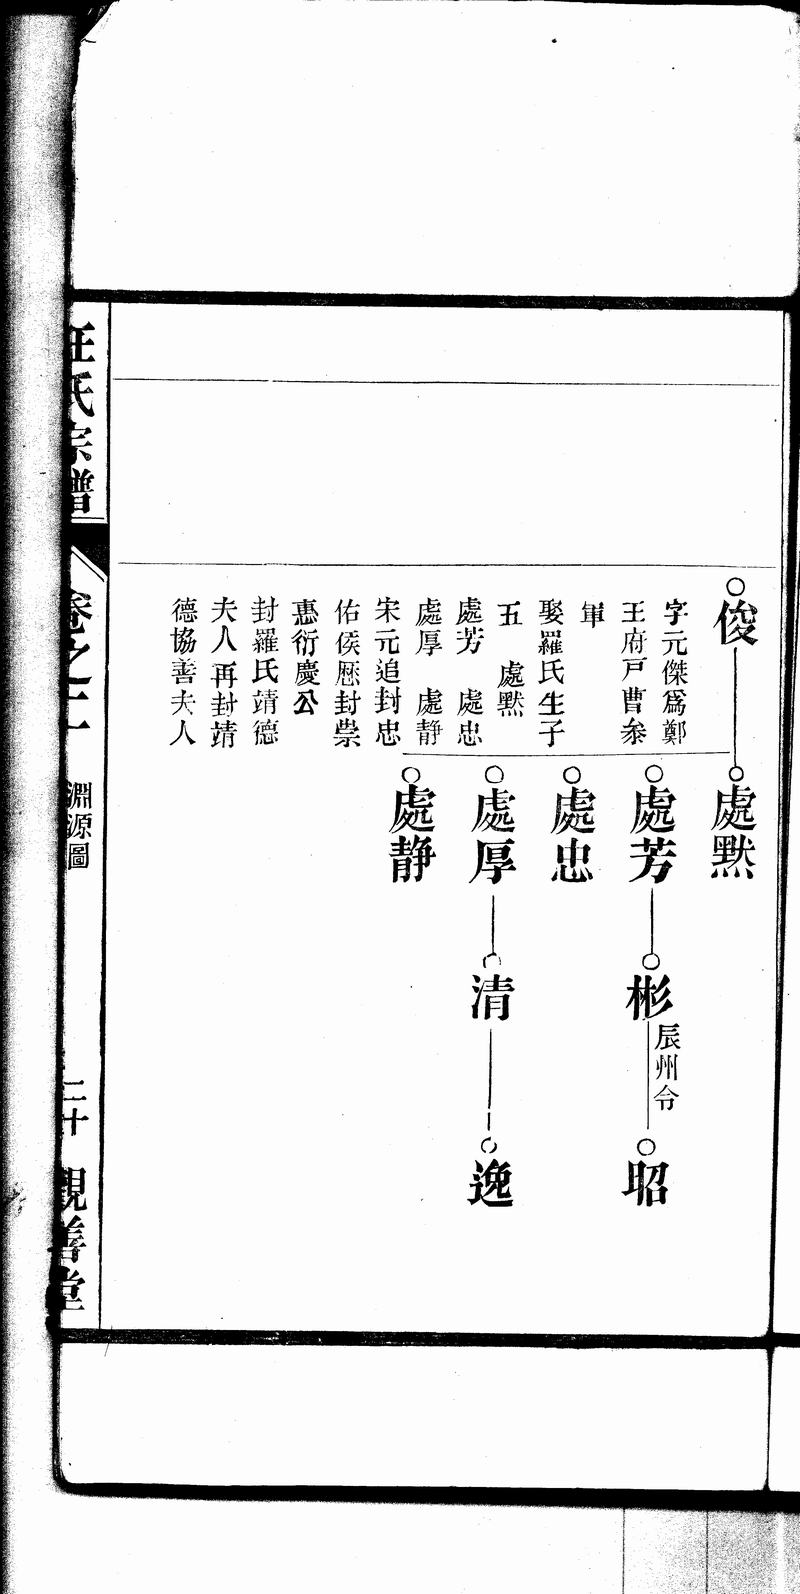 俊
字元傑爲鄭
王府戸曹叅
軍
娶羅氏生子
五 處黙
處芳 處忠
處厚 處静
宋元追封忠
佑侯歴封崇
惠衍慶公
封羅氏靖德
夫人再封靖
德協善夫人
處黙
處芳
彬
辰州令
昭
處忠
處厚
清
逸
處静
汪氏宗譜
卷之二
淵源圖
二十
觀善堂